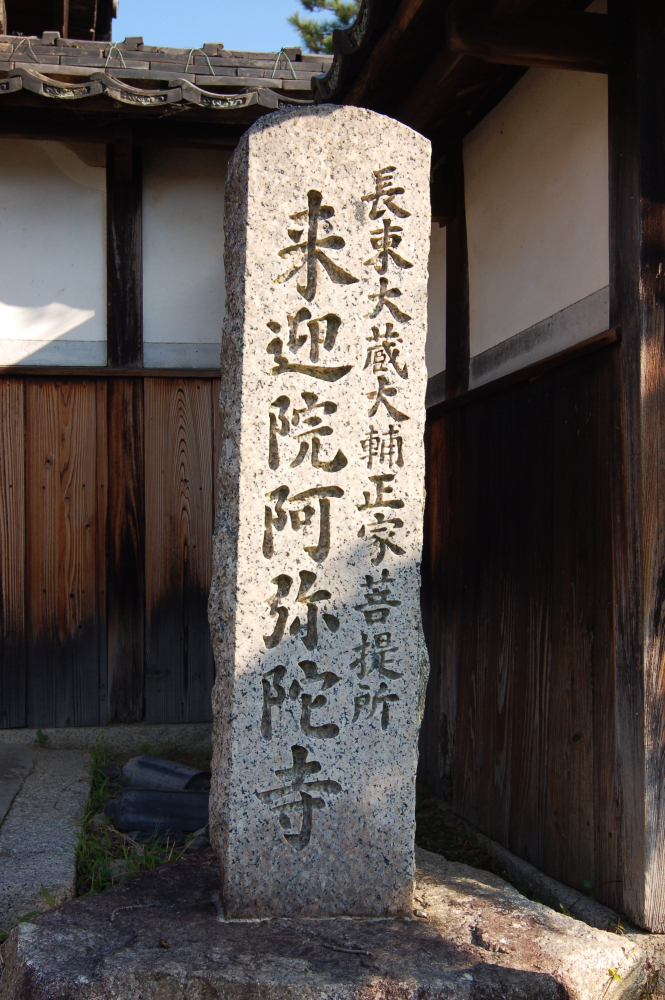 長束大蔵大輔正家菩提所
来迎院阿弥陀寺